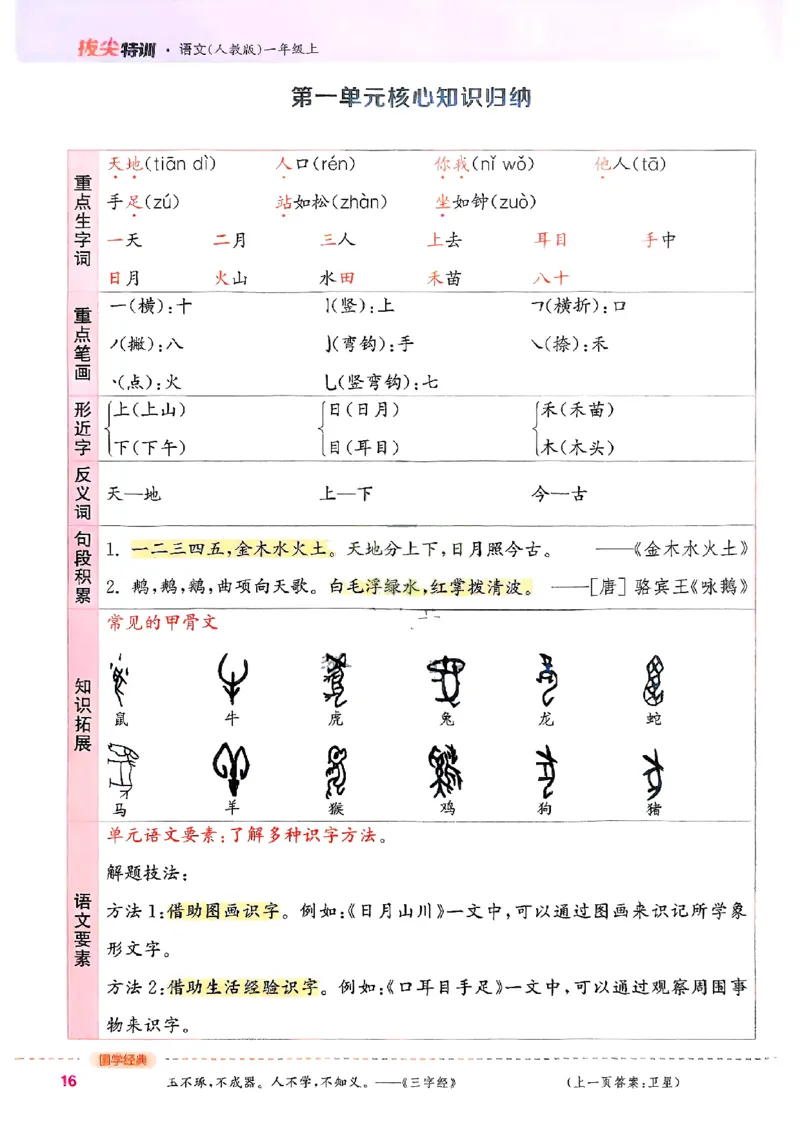 拔尖特训·语文(人教版)一年级上
第一单元核心知识归纳
重点生字词
天地(tiān dì) 人口(rén) 你我(nǐ wǒ) 他人(tā)
手足(zú) 站如松(zhàn) 坐如钟(zuò)
一天 二月 三人 上去 耳目 手中
日月 火山 水田 禾苗 八十
重点笔画
一(横):十 丨(竖):上 𠃍(横折):口
丿(撇):八 ㇁(弯钩):手 ㇏(捺):禾
丶(点):火 乚(竖弯钩):七
形近字
上(上山) 日(日月) 禾(禾苗)
下(下午) 目(耳目) 木(木头)
反义词
天—地 上—下 今—古
句段积累
1. 一二三四五,金木水火土。天地分上下,日月照今古。 ——《金木水火土》
2. 鹅,鹅,鹅,曲项向天歌。白毛浮绿水,红掌拨清波。 ——[唐]骆宾王《咏鹅》
知识拓展
常见的甲骨文
鼠 牛 虎 兔 龙 蛇
马 羊 猴 鸡 狗 猪
语文要素
单元语文要素:了解多种识字方法。
解题技法:
方法1:借助图画识字。例如:《日月山川》一文中,可以通过图画来识记所学象
形文字。
方法2:借助生活经验识字。例如:《口耳目手足》一文中,可以通过观察周围事
物来识字。
国学经典
16 玉不琢,不成器。人不学,不知义。——《三字经》 (上一页答案:卫星)